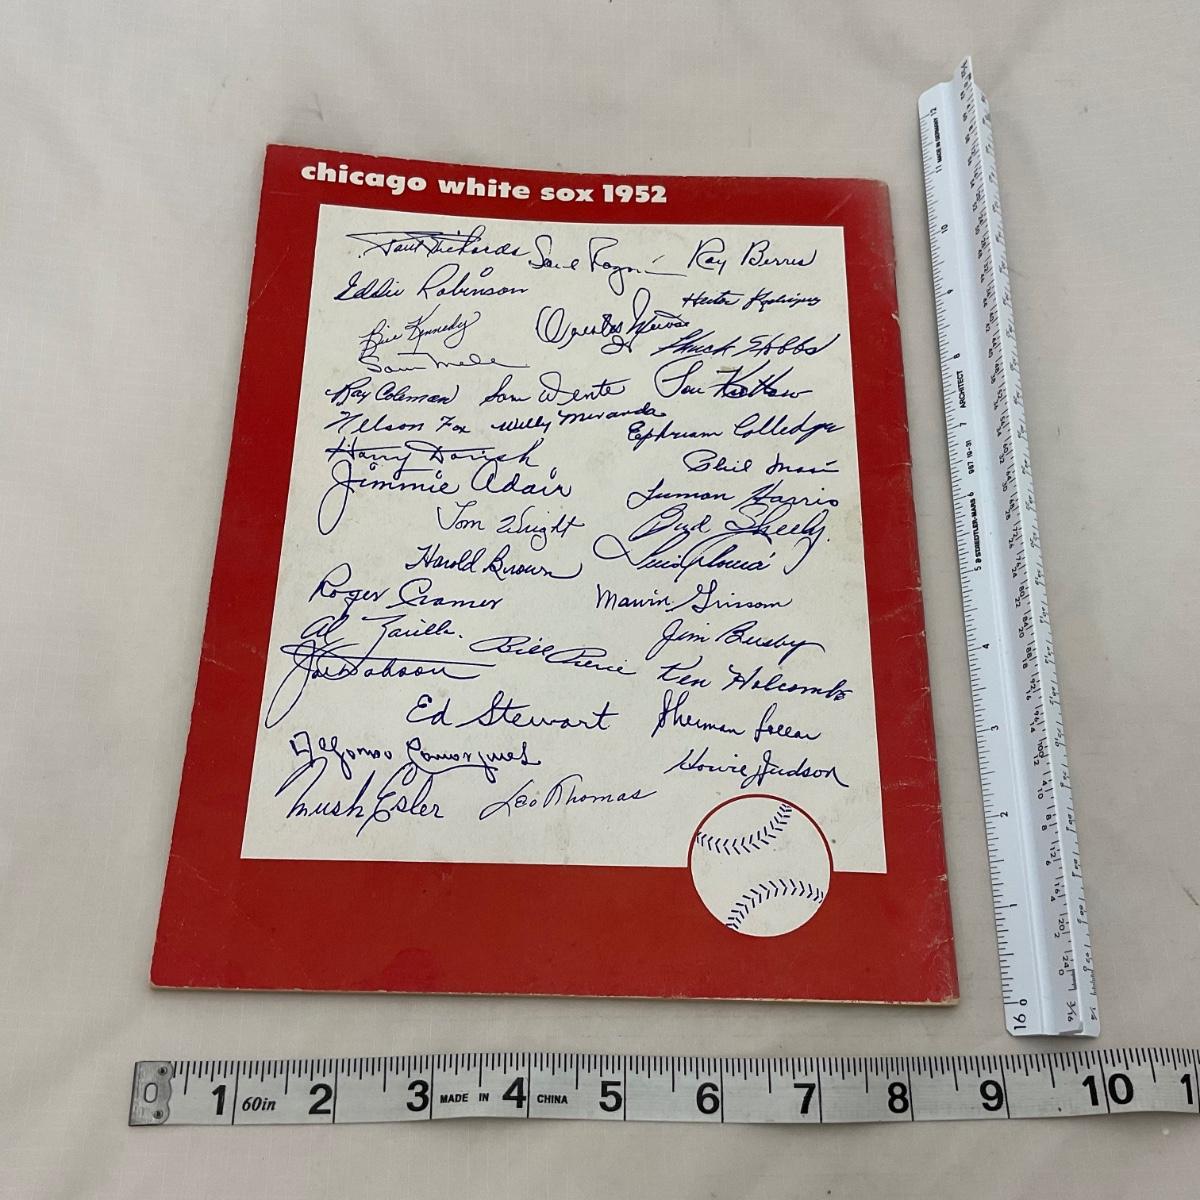 chicago white sox 1952
Paul Richards
Ray Berres
Eddie Robinson
Hector Rodriguez
Bill Kennedy
Orestes Minoso
Chuck Stobbs
Sam Mele
Ray Coleman
Sam Dente
Lou Kretlow
Nelson Fox
Willy Miranda
Ephraim Colledge
Harry Dorish
Phil Masi
Jimmie Adair
Luman Harris
Tom Wright
Bud Sheely
Harold Brown
Luis Aloma
Roger Cramer
Marvin Grissom
Al Zarilla.
Jim Busby
Bill Pierce
Joe Dobson
Ken Holcombe
Ed Stewart
Sherman Lollar
Alfonso Carrasquel
Howie Judson
Mush Esler
Leo Thomas
0 1 2 3 4 5 6 7 8 9 10 1
60in
MADE IN CHINA
MADE IN GERMANY
ARCHITECT
987 19-31
STAEDTLER-MARS
12 11 10 9 8 7 6 5 4 3 2 1 0
16